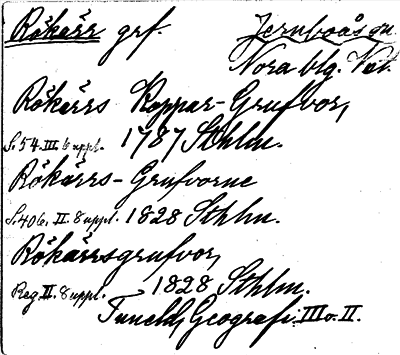 Rökärr grf. Jernboås sn.
Nora blg. Vstl.
Rökärrs Koppar-Grufvor,
S. 54. III. 6 uppl. 1787 Sthlm.
Rökärrs-Grufvorne
S. 406. II. 8 uppl. 1828 Sthlm.
Rökärrsgrufvor,
Reg. II. 8 uppl. 1828 Sthlm.
Tuneld, Geografi. III o. II.